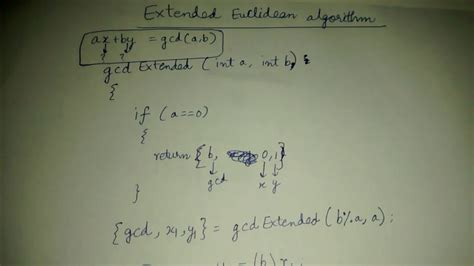 Extended Euclidean algorithm
ax+by = gcd(a,b)
? ?
gcd Extended (int a, int b)
{
if (a==0)
{
return {b, 0, 1}
gcd x y
}
{gcd, x1, y1} = gcdExtended (b%a, a);
= (b)